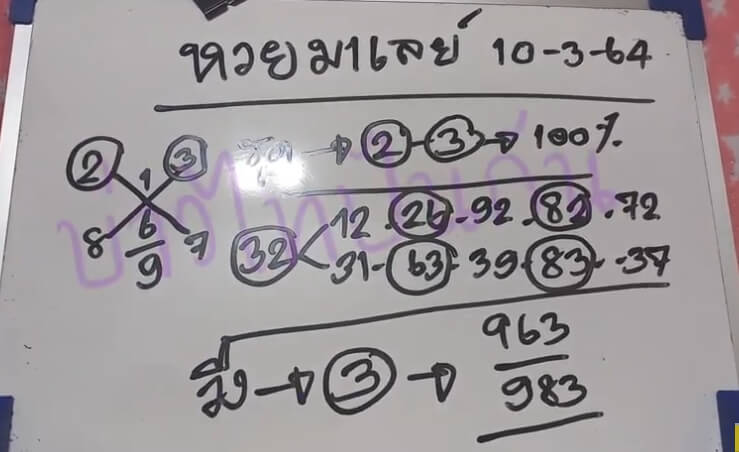 หวยมาเลย์ 10-3-64
2 1 3
8 6 7
9
รูด → 2-3 → 100%
32 < 12-26-92-82-72
31-63-39-83-37
วิ่ง → 3 → 963
983